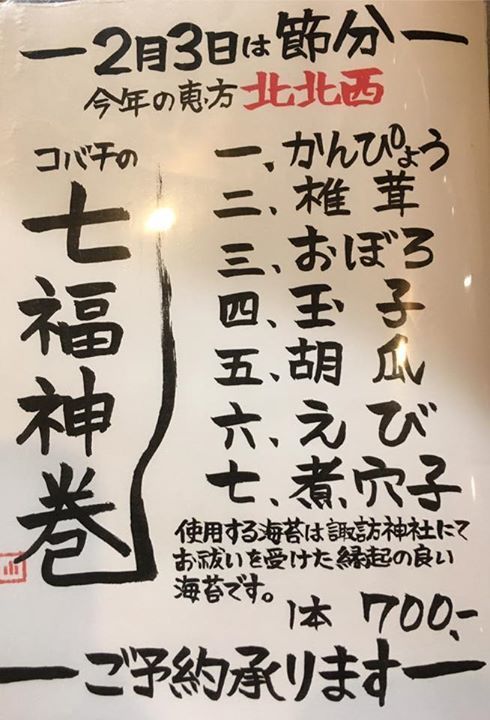 2月3日は節分
今年の恵方 北北西
コバチの
七福神巻
一、かんぴょう
二、椎茸
三、おぼろ
四、玉子
五、胡瓜
六、えび
七、煮穴子
使用する海苔は諏訪神社にて
お祓いを受けた縁起の良い
海苔です。
1本 700,-
ご予約承ります